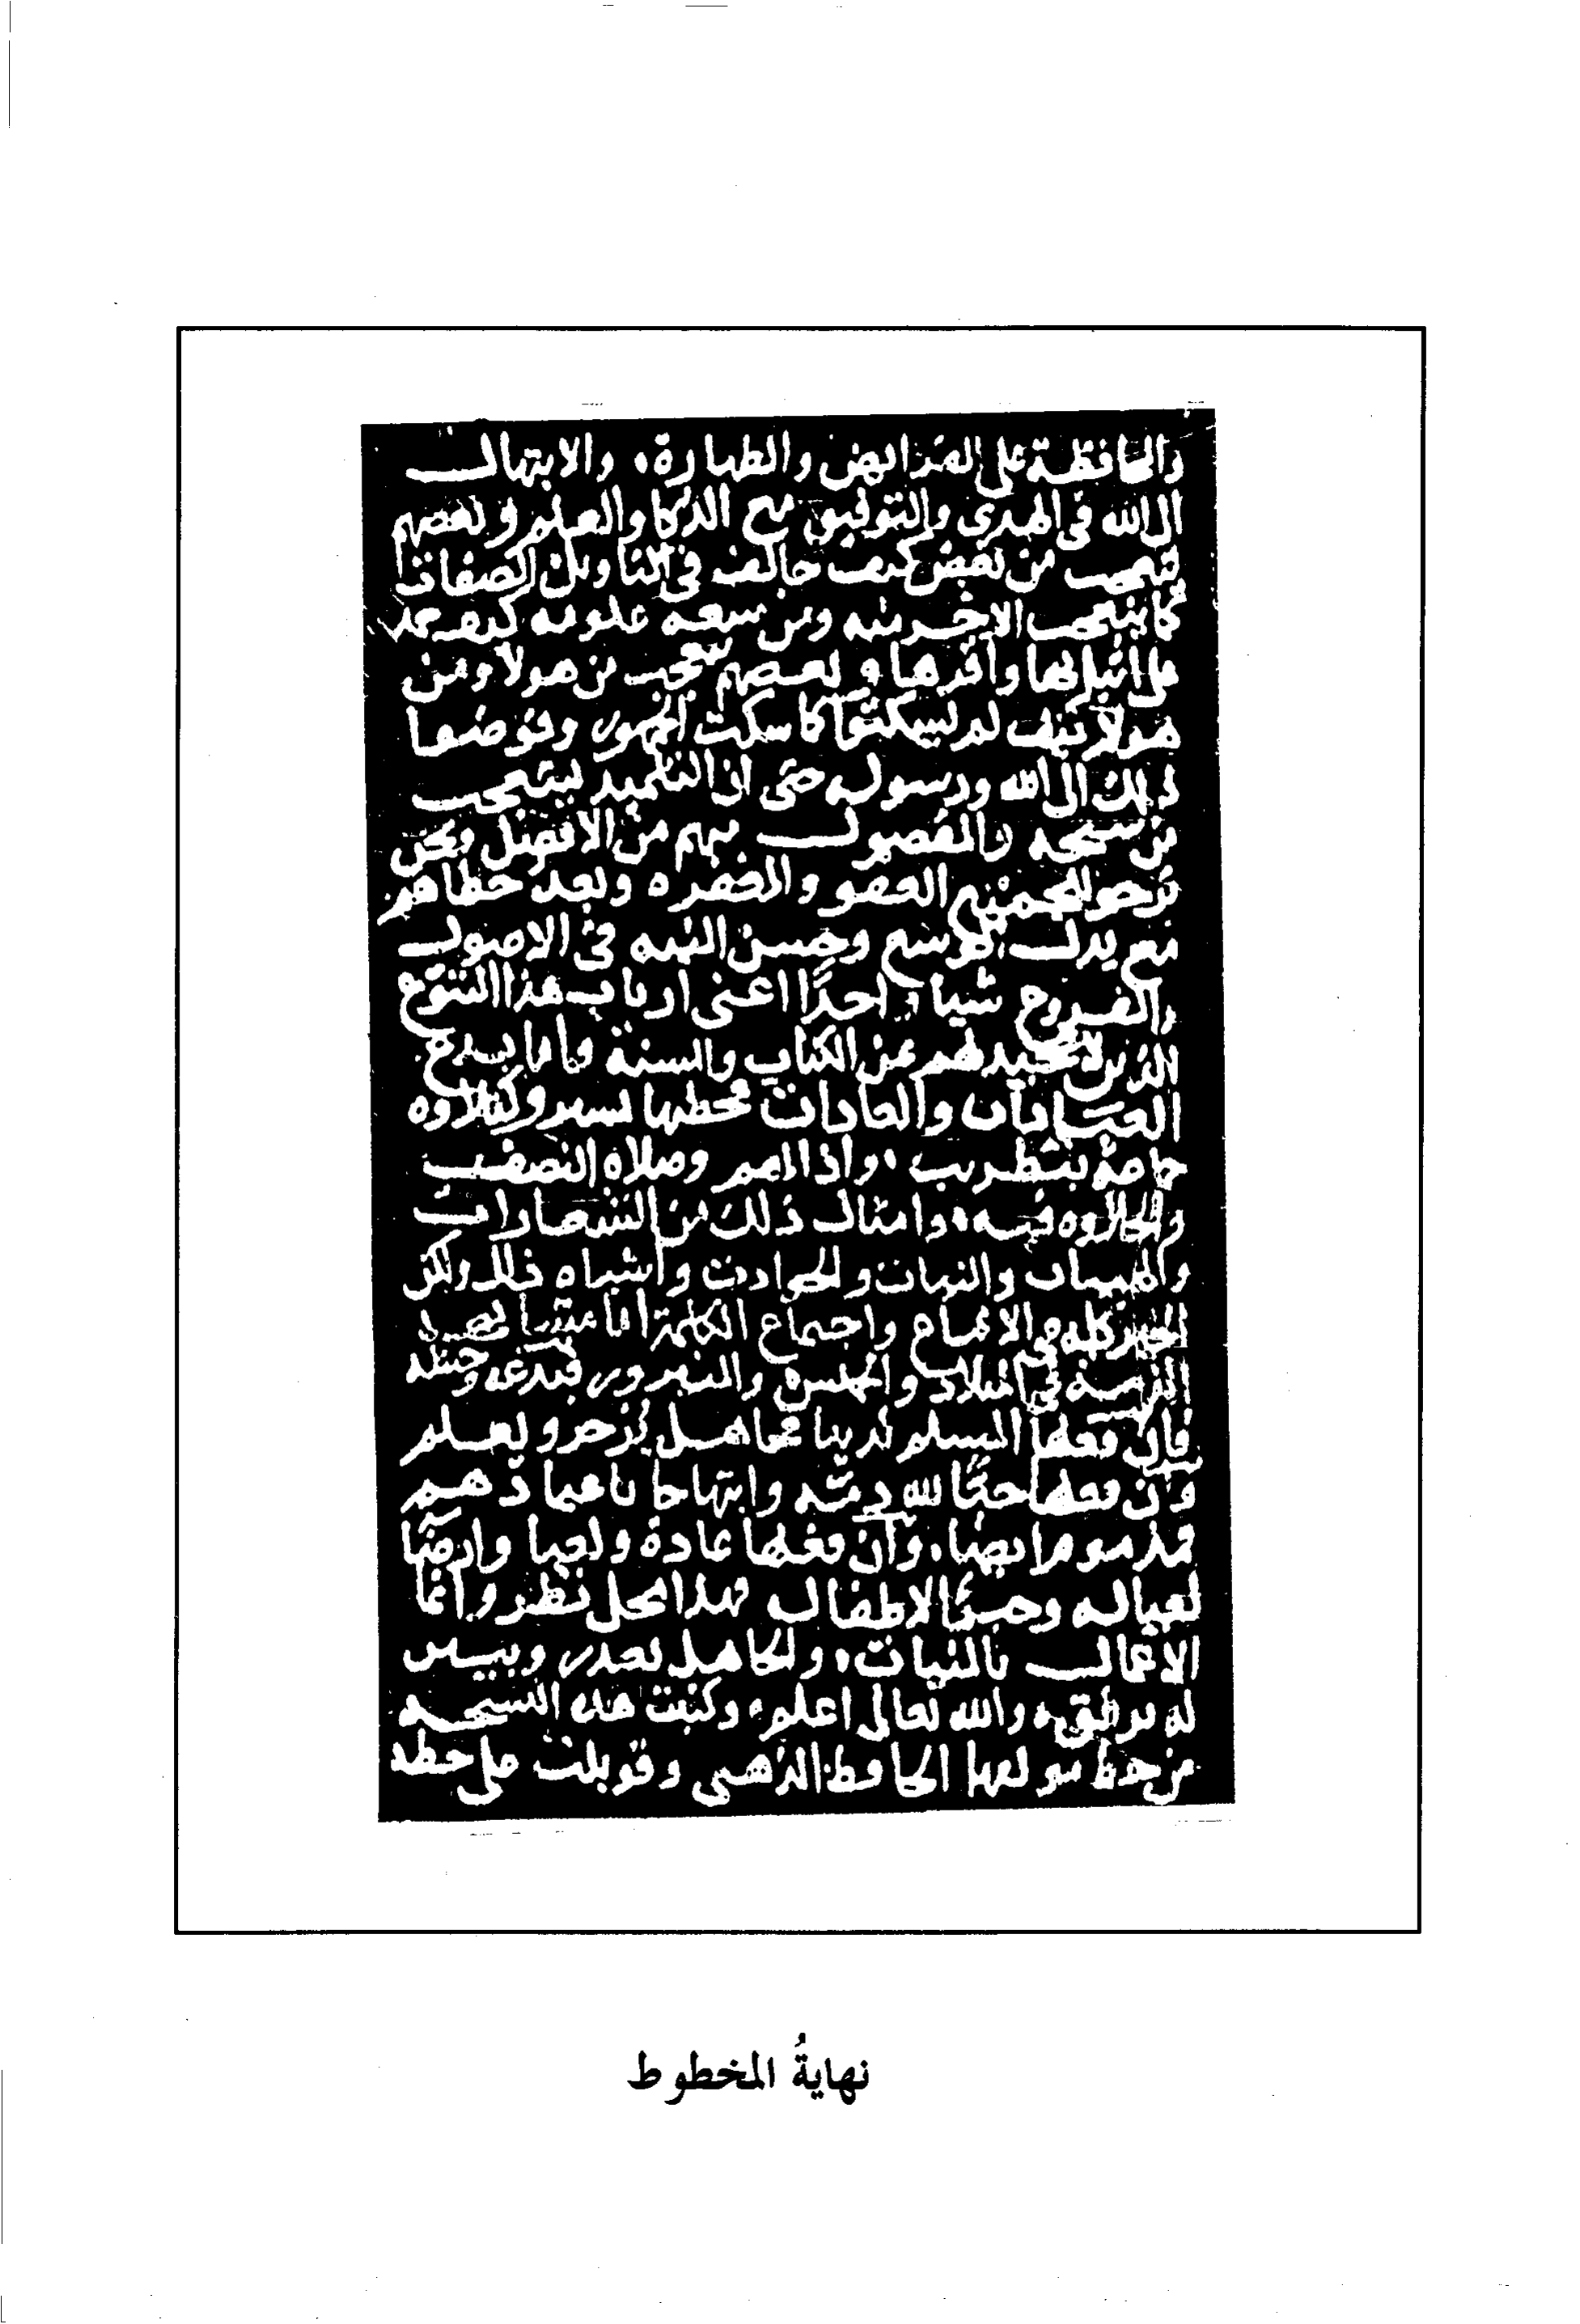 والمحافظة على الفرايض والطهارة، والابتهال
الى الله فى الهدى والتوفيق مع الذكا والعلم وبعضهم
يتعجب من بعض كيف خالف فى التاويل الصفات
كما يتعجب الاخر منه ومن سعه علومه كيف
على اثباتها واقرها وبعضهم يتعجب من هولا ومن
هولا كيف لم يسكتوا كما سكت الجمهور وفوضوا
ذلك الى الله ورسوله حتى ان التلميذ ليتعجب
من شيخه والمفضول منهم من الافضل ونحن
نرجو للجميع العفو والمغفره وبعد خطاهم
مع بذل الوسع وحسن النيه فى الاصول
والفروع شيا واحدا اعنى ارباب هذا التنوع
الذين لا محيد لهم عن الكتاب والسنة واما بدع
العبادات والعادات فخطبها يسير وكتلاوه
جماعة بتطريب، واذان وصلاة النصف
والحلاوه فيه، وامثال ذلك من الشعارات
والهيات والنيات والحوادث واشباه ذلك ولكن
الخير كله فى الاتباع واجتماع الكلمة اما
فى الميلاد والخميس والنيروز فبدعه وحشه
فان فعلها المسلم تدينا فجاهل يزجر ويعلم
وان فعلها حبا لاهل الذمه وابتهاجا باعيادهم
فمذموم ايضا، وان فعلها عادة ولعبا وارضا
لعياله وجبرا لاطفاله فهذا محل نظر وانما
الاعمال بالنيات، والجاهل يعذر ويبين
له برفق، والله تعالى اعلم، وكتبت هذه النسخه
من خط مولفها الحافظ الذهبى وقوبلت على خطه
نهايةُ المخطوط